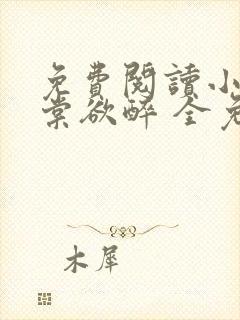 免費閱讀小
棠欲醉 全免
木犀